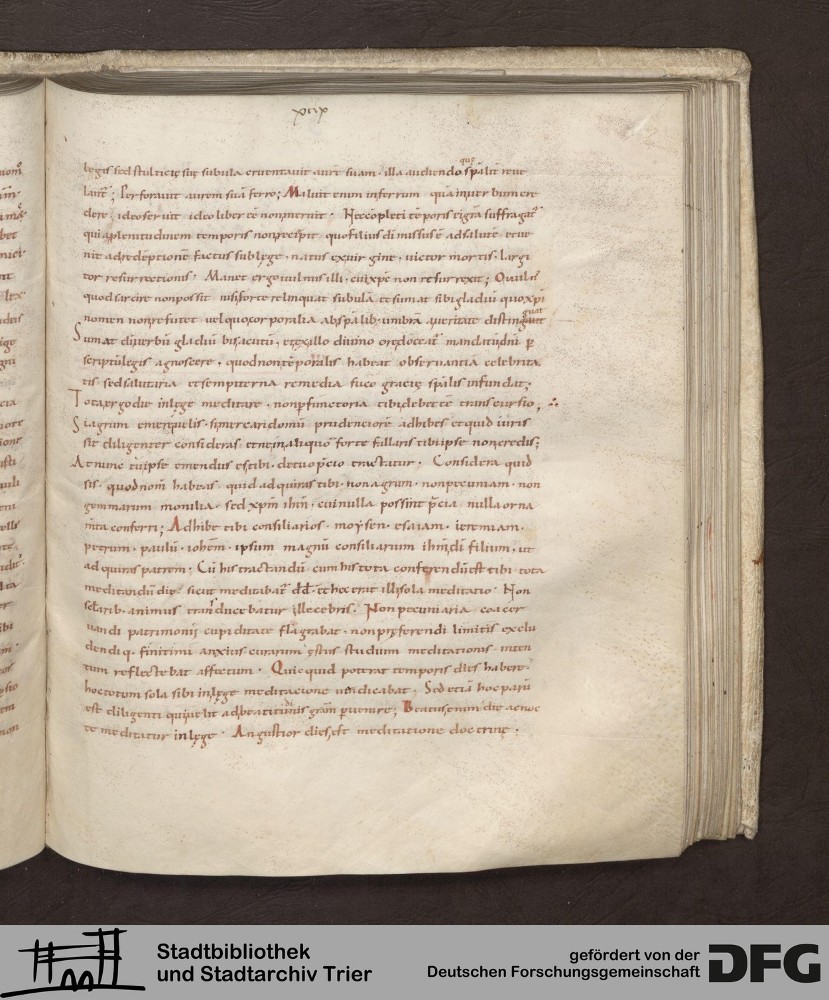 xcix
legis sed stultitię suę subula cruentauit aurē suam · illa audiendo quę sp̄alit̄ reue
lant᷑; Perforauit aurem suā ferro; Maluit enim inferrum quā in uerbum cre
dere · ideo seruit ideo liber eē non meruit · Nec cōpleti tēporis ei grā suffragat᷑
qui a plenitudinem temporis non recepit · quo filius dī missus ē ad salutē · et ue
nit ad redēptionē factus sub lege · natus ex uirgine · uictor mortis · largi
tor resurrectionis · Manet ergo uulnus illi · cui xp̄c non resurrexit;
quod sarcire non possit nisi forte relinquat subulā et sumat sibi gladiū quo xp̄i
nomen non refutet uel quo corporalia ab sp̄alib · umbrā a ueritate distinguat
Sumat dī uerbū gladiū bis acutū · et ex illo diuino
scriptū legis agnoscere · quod non tēporalis habeat obseruantia celebrita
tis · sed salutaria et sempiterna remedia suco gracię sp̄alis infundat;
Tota ergo die in lege meditare · non pfunctoria tibi debet eē transcursio;
Si agrum emere uelis · si mercari domū prudenciorē adhibes et quid iuris
sit diligenter consideras · et ne in aliquo forte fallaris tibi ipse non credis;
At nunc tu ipse emendus es tibi · de tuo p̄cio tractatur · Considera quid
sis · quod nom̄ habeas · quid adquiras tibi · non agrum · non pecuniam · non
gemmarum monilia · sed xp̄m ihm̄ · cui nulla possint p̄cia nulla orna
m̄ta conferri; Adhibe tibi consiliarios · moysen · esaiam · ieremiam ·
petrum · paulū · iohēm · ipsum magnū consiliarium ihm̄ dī filium · ut
adquiras patrem · Cū his tractandū cum his tota conferendū est tibi tota
meditandū die · sicut meditabat᷑ dd̄ · et hęc erat illi sola meditatio · Non
sęcłarib · animus transducebatur illecebris · Non pecuniaria coacer
uandi patrimonii cupiditate flagrabat · non pręferendi limitis exclu
dendiq · finitimi anxius curarum ęstus studium meditationis inten
tum reflectebat affectum · Quicquid poterat temporis dies habere ·
hoc totum sola sibi in lege meditacione uendicabat · Sed etiā hoc parū
est diligenti qui uelit ad beatitudinis grām puenire; Beatus enim die ac noc
te meditatur in lęge · Angustior dies est meditatione doctrinę ·
Stadtbibliothek
und Stadtarchiv Trier
gefördert von der
Deutschen Forschungsgemeinschaft
DFG